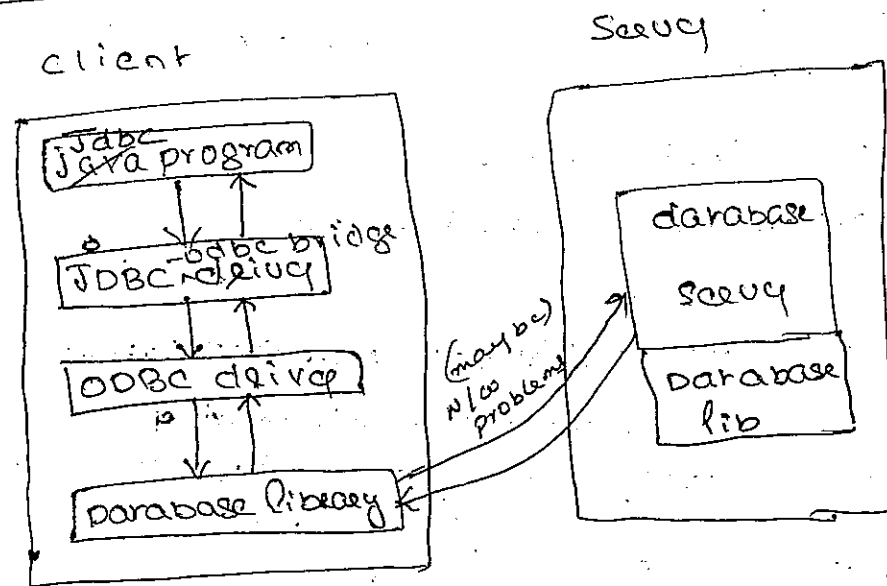 Client
Server
Jdbc
java program
-odbc bridge
JDBC driver
ODBC driver
Database library
(may be)
N/W
problems
database
server
Database
lib